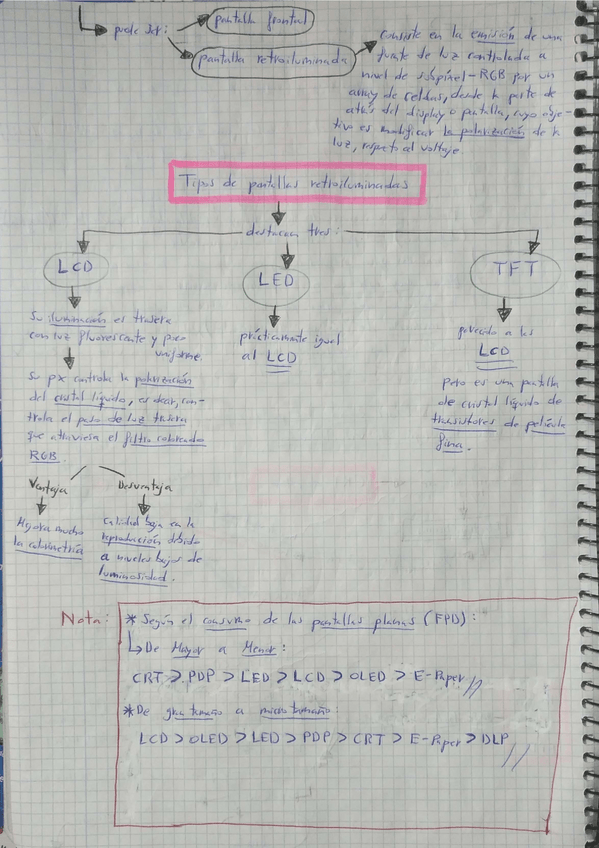 puede ser:
pantalla frontal
pantalla retroiluminada
consiste en la emisión de una
fuente de luz controlada a
nivel de subpixel-RGB por un
array de celdas, desde la parte de
atrás del display o pantalla, cuyo obje-
tivo es modificar la polarización de la
luz, respeto al voltaje
Tipos de pantallas retroiluminadas
destacan tres:
LCD
LED
TFT
Su iluminación es trasera
con luz fluorescente y poco
uniforme.
Su px controla la polarización
del cristal líquido, es decir, con-
trola el paso de luz trasera
que atraviesa el filtro coloreado
RGB.
Ventaja
Desventaja
Mejora mucho
la colorimetría
calidad baja en la
reproducción debido
a niveles bajos de
luminosidad.
prácticamente igual
al LCD
parecido a las
LCD
Pero es una pantalla
de cristal líquido de
transistores de película
fina.
Nota:
* Según el consumo de las pantallas planas (FPD):
De Mayor a Menor:
CRT > PDP > LED > LCD > OLED > E-Paper
* De gran tamaño a micro tamaño:
LCD > OLED > LED > PDP > CRT > E-Paper > DLP